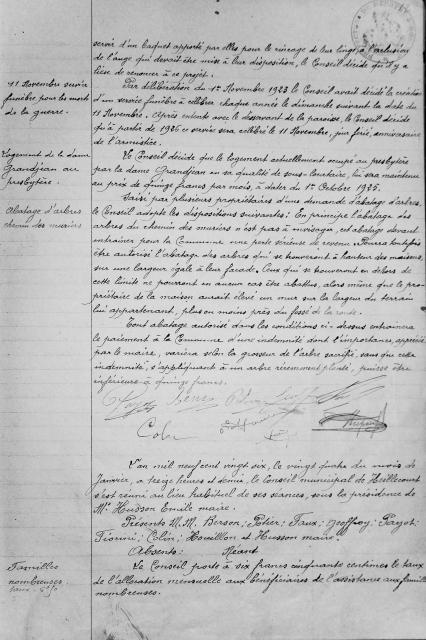 servir d'un baquet apporté par elles pour le rinçage de leur linge, à l'exclusion
de l'auge qui devait être mise à leur disposition, le Conseil décide qu'il y a
lieu de renoncer à ce projet.
11 Novembre service
funèbre pour les morts
de la guerre.
Par délibération du 1er Novembre 1923 le Conseil avait décidé la création
d'un service funèbre à célébrer chaque année le dimanche suivant la date du
11 Novembre. Après entente avec le desservant de la paroisse, le Conseil décide
qu'à partir de 1926 ce service sera célébré le 11 Novembre, jour férié, anniversaire
de l'armistice.
Logement de la dame
Grandjean au
presbytère.
Le Conseil décide que le logement actuellement occupé au presbytère
par la dame Grandjean en sa qualité de sous-locataire, lui sera maintenu
au prix de quinze francs par mois, à dater du 1er Octobre 1925.
Abatage d'arbres
chemin des muriers
Saisi par plusieurs propriétaires d'une demande d'abatage d'arbres,
le Conseil adopte les dispositions suivantes: En principe l'abatage des
arbres du chemin des muriers n'est pas à envisager, cet abatage devant
entraîner pour la Commune une perte sérieuse de revenu. Pourra toutefois
être autorisé l'abatage des arbres qui se trouveront à hauteur des maisons,
sur une largeur égale à leur façade. Ceux qui se trouveront en dehors de
cette limite ne pourront en aucun cas être abattus, alors même que le pro-
priétaire de la maison aurait élevé un mur sur la largeur du terrain
lui appartenant, plus ou moins près du fossé de la route.
Tout abatage autorisé dans les conditions ci-dessus entraînera
le paiement à la Commune d'une indemnité dont l'importance, appréciée
par le maire, variera selon la grosseur de l'arbre sacrifié, sans que cette
indemnité, s'appliquant à un arbre récemment planté, puisse être
inférieure à quinze francs.
Colin
L'an mil neuf cent vingt six, le vingt quatre du mois de
Janvier, à treize heures et demie, le Conseil municipal de Heillecourt
s'est réuni au lieu habituel de ses séances, sous la présidence de
Mr Husson Emile maire.
Présents M.M. Berson; Potier; Faux; Geoffroy; Parjot;
Fiorini; Colin; Houillon et Husson maire.
Absents: Néant
Familles
nombreuses.
Le Conseil porte à six francs cinquante centimes le taux
de l'allocation mensuelle aux bénéficiaires de l'assistance aux familles
nombreuses.